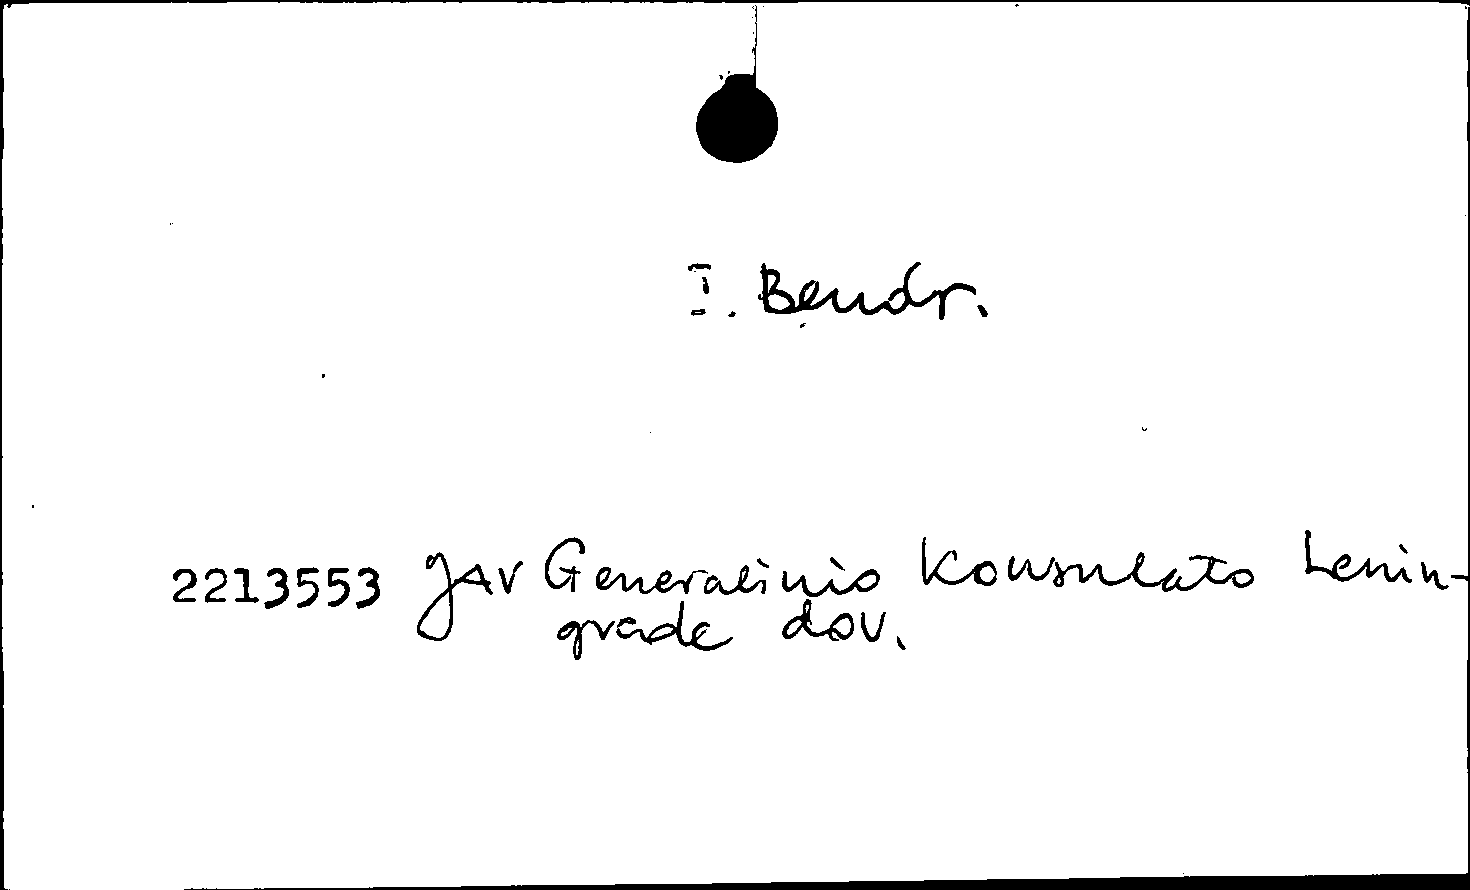 I. Bendr.
2213553 JAV Generalinio Konsulato Lenin-
grade dov.